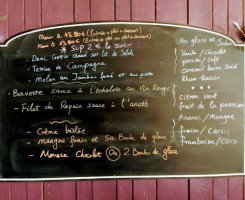 Menu à 15.80€ (Entrée + plat + dessert)
Menu à 13.80€ (Entrée + plat ou plat + dessert)
* SUP 2€ le soir
- Demi Crottin chaud sur lit de Salade
- Terrine de Campagne
- Melon au Jambon
- Bavette sauce à l'échalote au Vin Rouge
- Filet de sauce à l'aneth
- Crème brûlée
- mangue fraîche et sa Boule de glace
- Mousse Chocolat Ou 2 Boules de glace
Vanille / Chocolat
pistache / café
caramel beurre Salé
Rhum-Raisin
* * *
Citron vert
fruit de la passion
Ananas / Mangue
fraise / Cassis
framboise / Coco